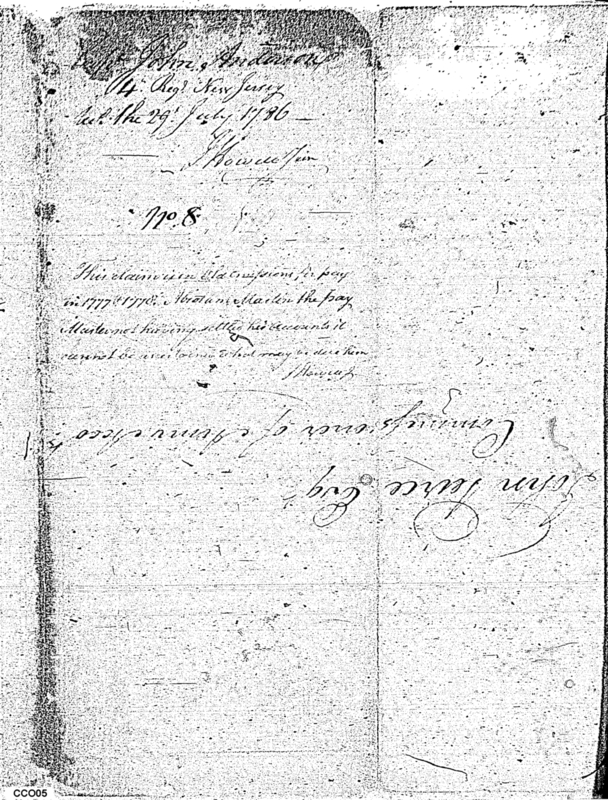 Capt John Anderson
4th Regt New Jersey
the 29t July 1786
J Howell Jun
No. 8
This claim is in Old Emissions for pay
in 1777 & 1778. Abraham Martin the pay
Master not having settled his accounts it
cannot be what may be due him
J Howell J
John Pierce Esqr
Commissioner of Army Accots
CCO05